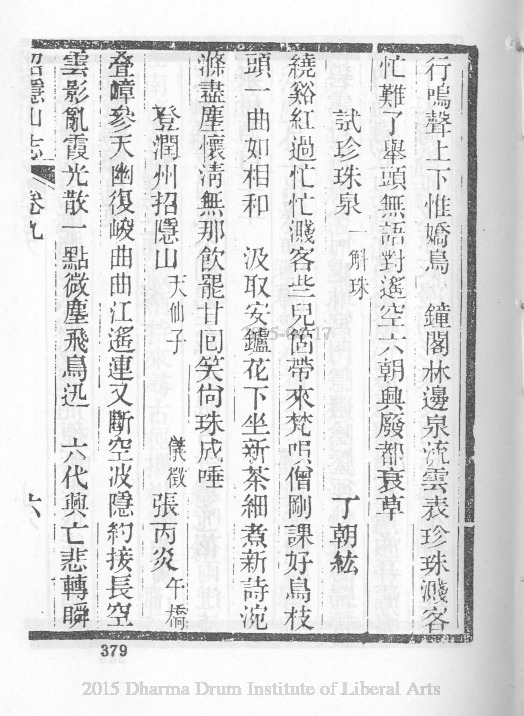 行鳴聲上下惟嬌鳥　鐘閣林邊泉流雲表珍珠濺客
忙難了舉頭無語對遙空六朝興廢都衰草
試珍珠泉　一斛珠　丁朝紘
繞谿紅過忙忙濺客些兒箇帶來梵唄僧剛課好鳥枝
頭一曲如相和　汲取安鑪花下坐新茶細煮新詩涴
滌盡塵懷淸無那飲罷甘回笑倘珠成唾
登潤州招隱山　天仙子　儀徵　張丙炎　午橋
叠嶂參天幽復峻曲曲江遙連又斷空波隱約接長空
雲影亂霞光散一點微塵飛鳥迅　六代興亡悲轉瞬
招隱山志　卷九　六
379
2015 Dharma Drum Institute of Liberal Arts